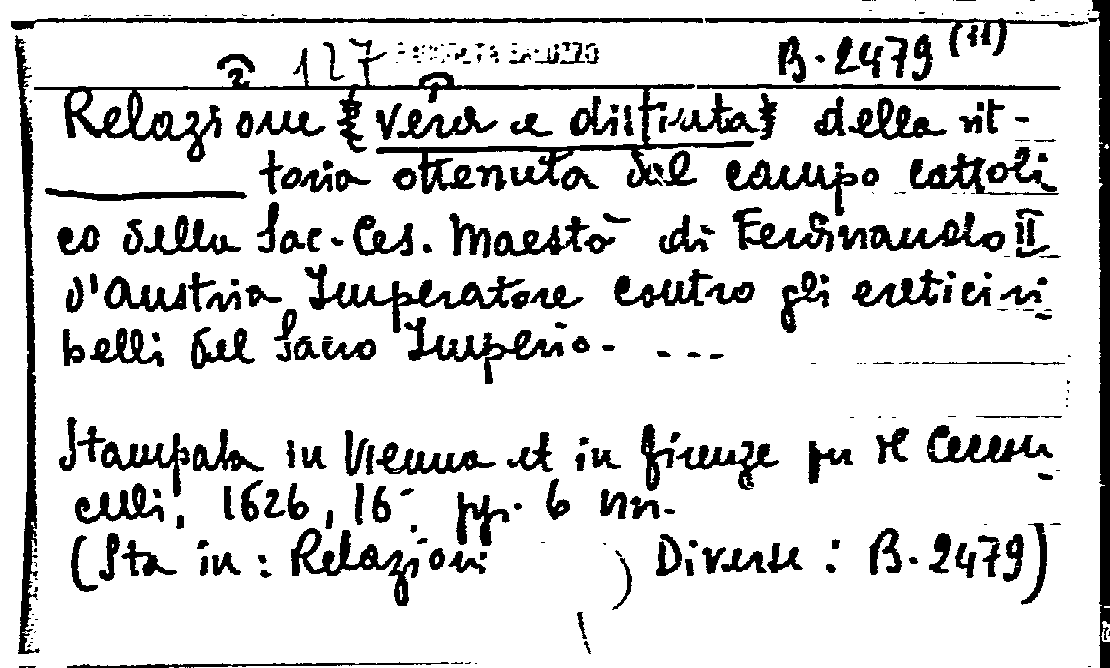 2 127 RACCOLTA SALUZZO B. 2479 (11)
Relazione {vera e distinta} della vit-
toria ottenuta dal campo cattoli
co della Sac. Ces. Maestà di Ferdinando II
d'Austria Imperatore contro gli eretici ri
belli del Sacro Imperio. - ---
Stampata in Vienna et in Firenze per il Ceccon
celli, 1626, 16°. pp. 6 nn.
(Sta in: Relazioni ) Diverse: B. 2479)